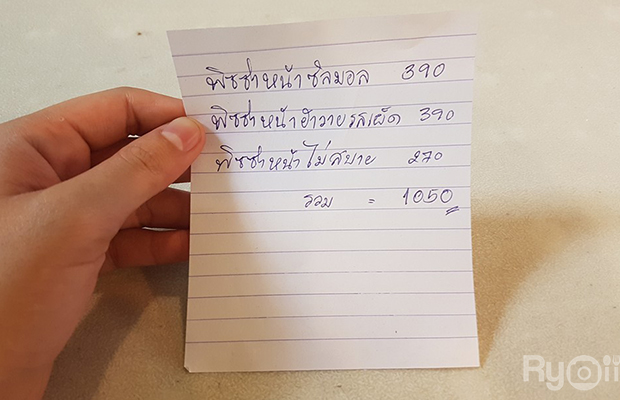 พิซซ่าหน้าซิลมอล 390
พิซซ่าหน้าฮาวายรสเผ็ด 390
พิซซ่าหน้าไม่สบาย 270
รวม = 1050
Ryoii